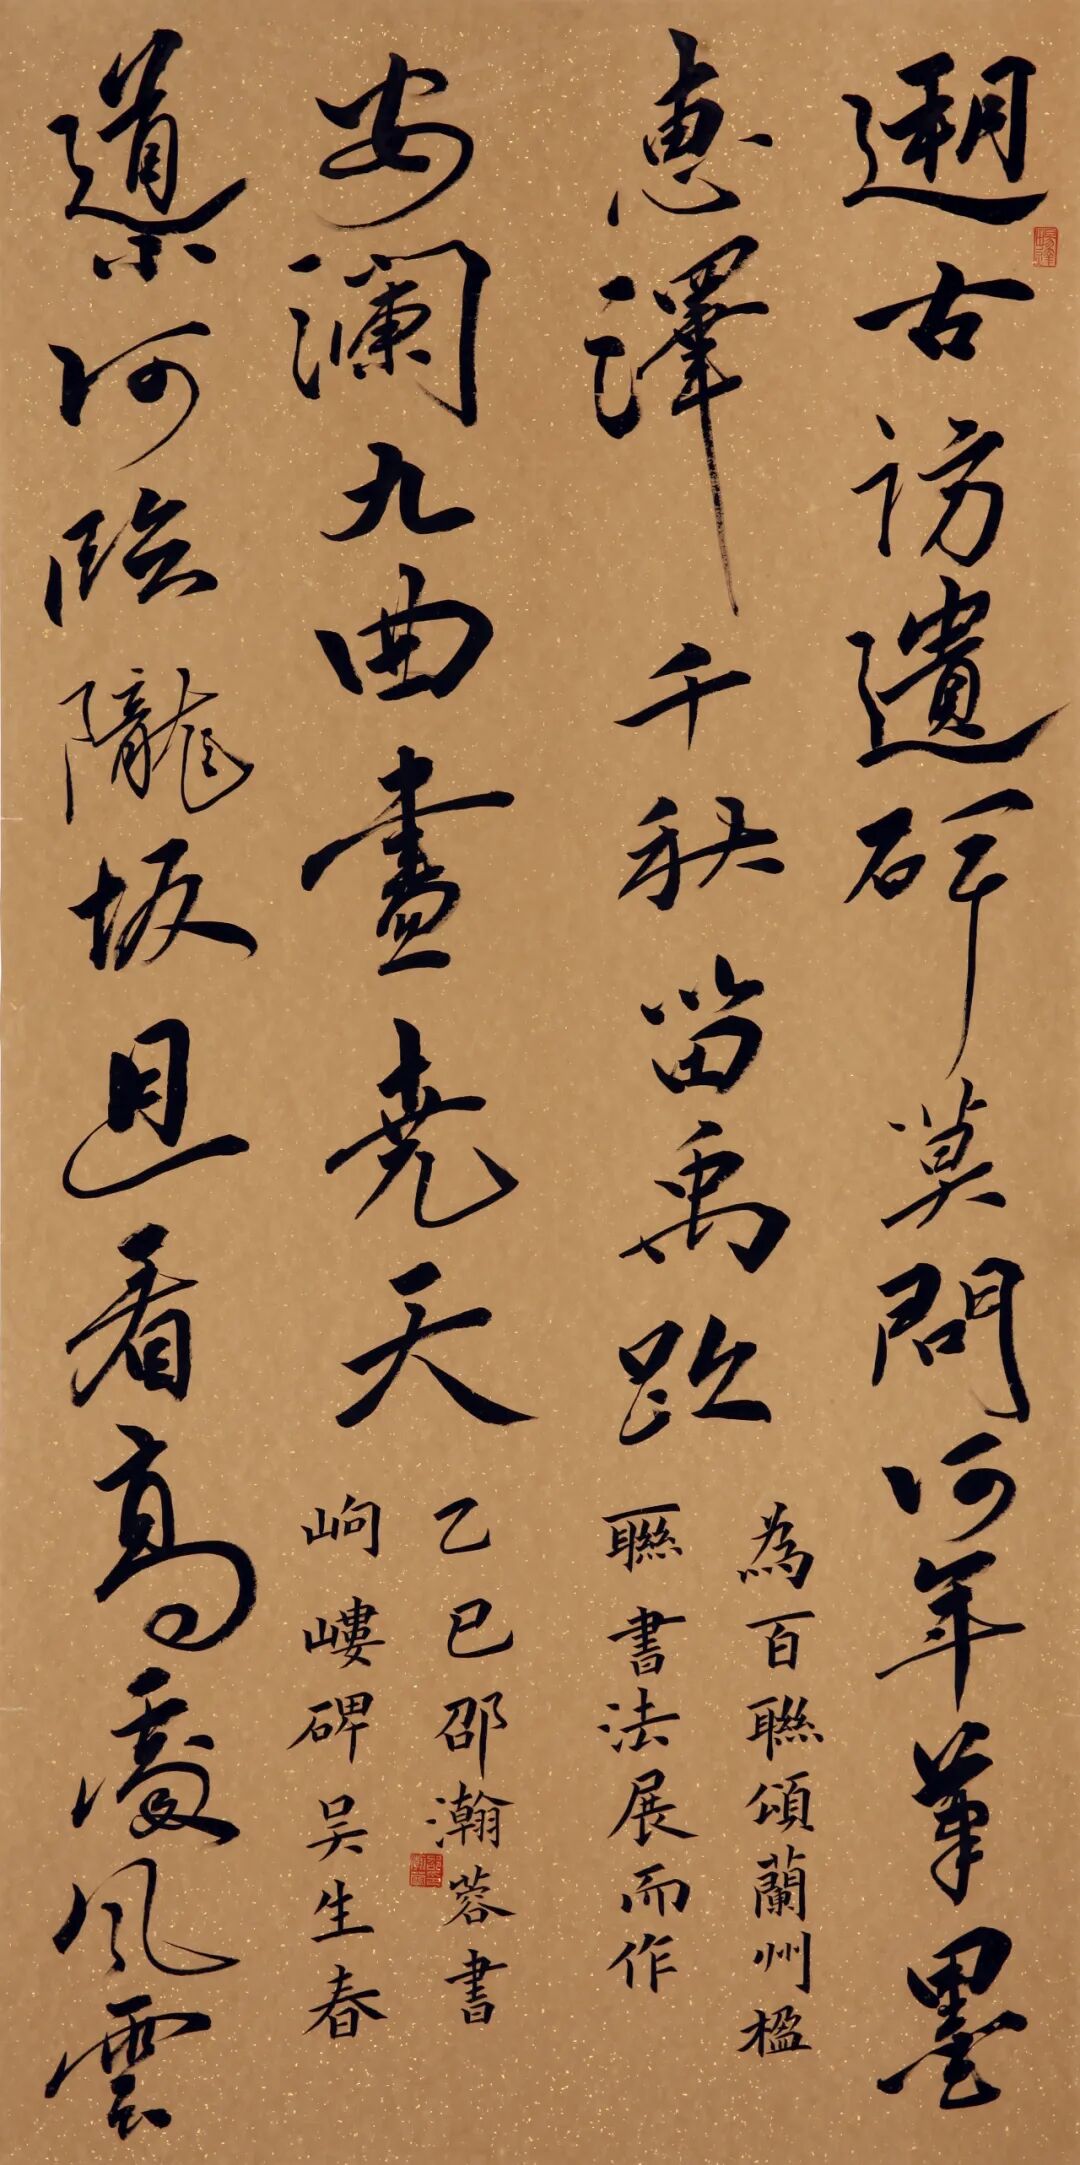 遡古訪遺碑莫問何年筆墨
惠澤千秋留禹跡
為百聯頌蘭州楹
聯書法展而作
導河臨隴坂且看高處風雲
安瀾九曲畫堯天
岣嶁碑吳生春
乙巳邵瀚蓉書